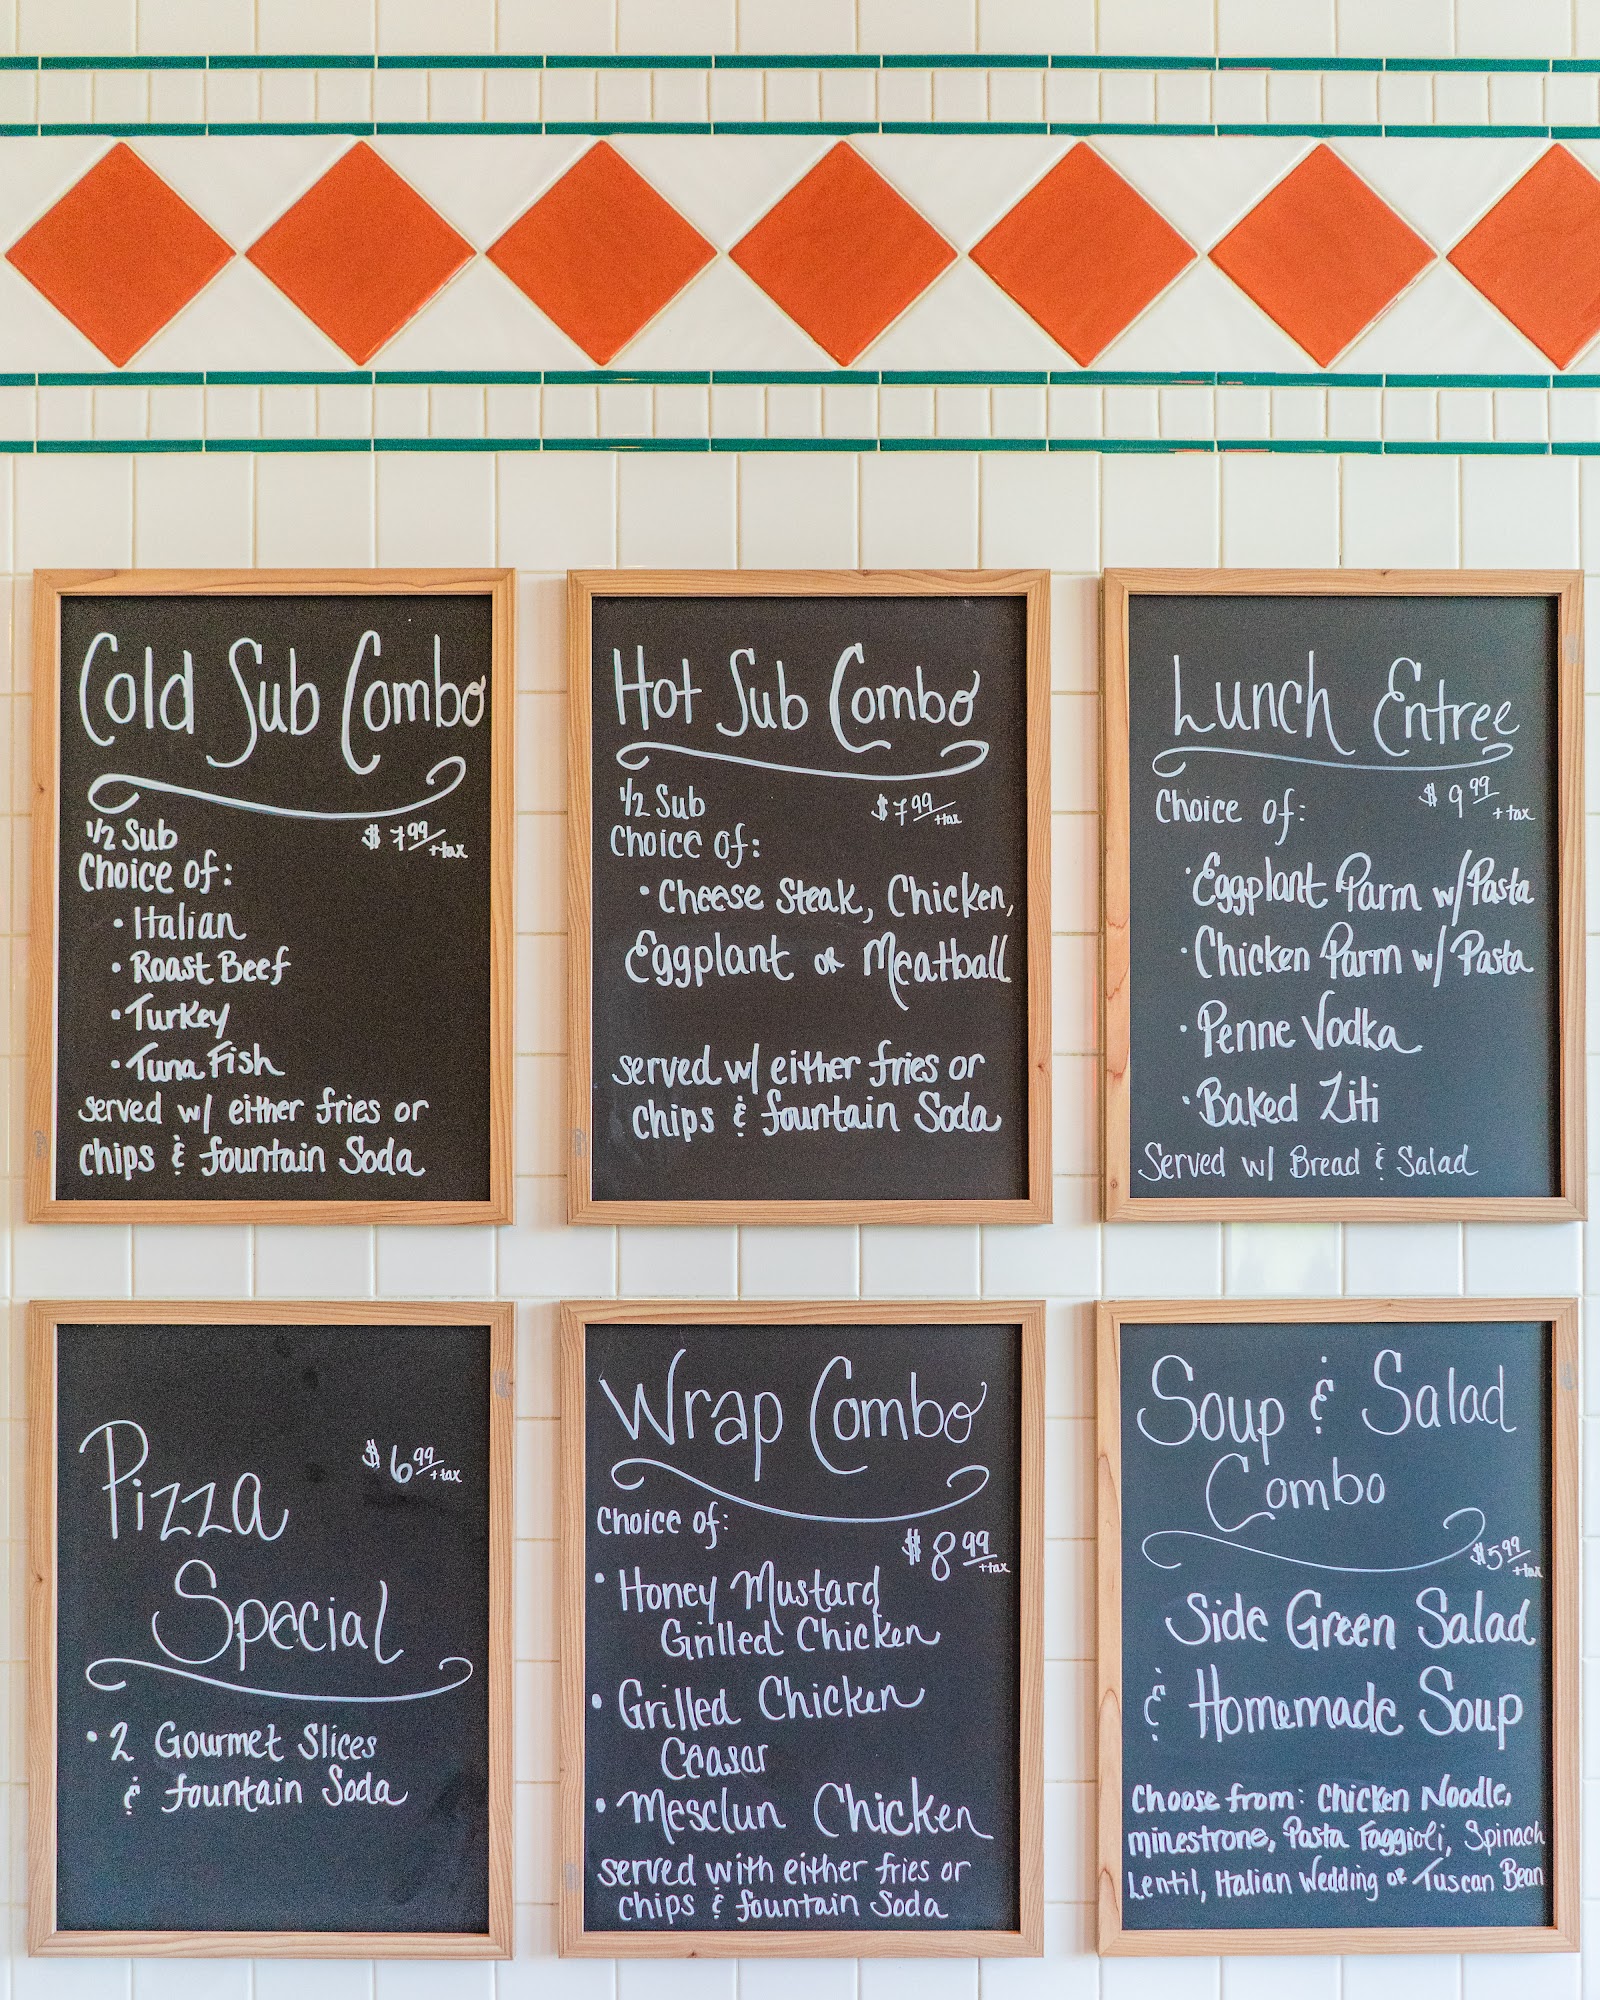 Cold Sub Combo
1/2 Sub $7.99 + tax
Choice of:
• Italian
• Roast Beef
• Turkey
• Tuna Fish
served w/ either fries or
chips & fountain Soda
Hot Sub Combo
1/2 Sub $7.99 + tax
Choice of:
• Cheese Steak, Chicken,
Eggplant or Meatball
served w/ either fries or
chips & fountain Soda
Lunch Entree
Choice of: $9.99 + tax
• Eggplant Parm w/ Pasta
• Chicken Parm w/ Pasta
• Penne Vodka
• Baked Ziti
Served w/ Bread & Salad
Pizza $6.99 + tax
Special
• 2 Gourmet Slices
& fountain Soda
Wrap Combo
Choice of:
$8.99 + tax
• Honey Mustard
Grilled Chicken
• Grilled Chicken
Ceasar
• Mesclun Chicken
served with either fries or
chips & fountain Soda
Soup & Salad
Combo
$5.99 + tax
Side Green Salad
& Homemade Soup
Choose from: Chicken Noodle,
minestrone, Pasta Faggioli, Spinach
Lentil, Italian Wedding or Tuscan Bean